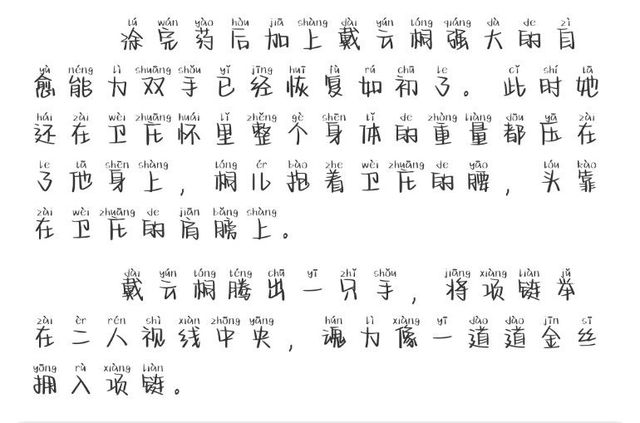 tú wán yào hòu jiā shàng dài yún tóng qiáng dà de zì
涂完药后加上戴云桐强大的自
yù néng lì shuāng shǒu yǐ jīng huī fù rú chū le cǐ shí tā
愈能力双手已经恢复如初了。此时她
hái zài wèi zhuāng huái lǐ zhěng gè shēn tǐ de zhòng liàng dōu yā zài
还在卫庄怀里整个身体的重量都压在
le tā shēn shàng tóng ér bào zhe wèi zhuāng de yāo tóu kào
了他身上，桐儿抱着卫庄的腰，头靠
zài wèi zhuāng de jiān bǎng shàng
在卫庄的肩膀上。
dài yún tóng téng chū yī zhī shǒu jiāng xiàng liàn jǔ
戴云桐腾出一只手，将项链举
zài èr rén shì xiàn zhōng yāng hún lì xiàng yī dào dào jīn sī
在二人视线中央，魂力像一道道金丝
yōng rù xiàng liàn
拥入项链。